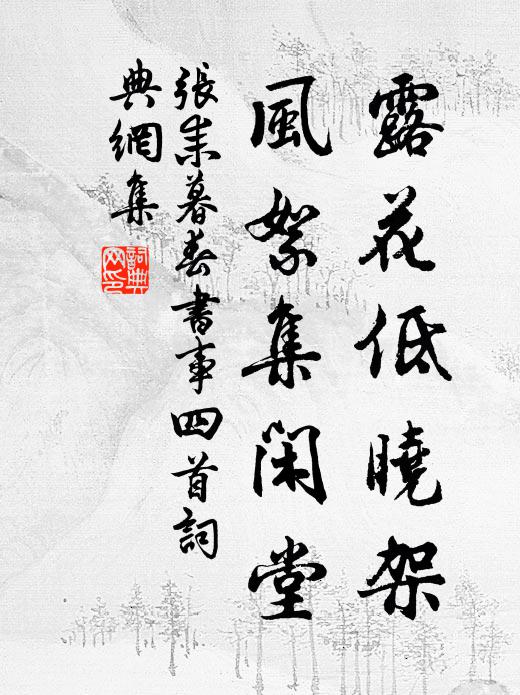 露花低曉架
風絮集閑堂
張耒暮春書事四首詞
典網集
詞典